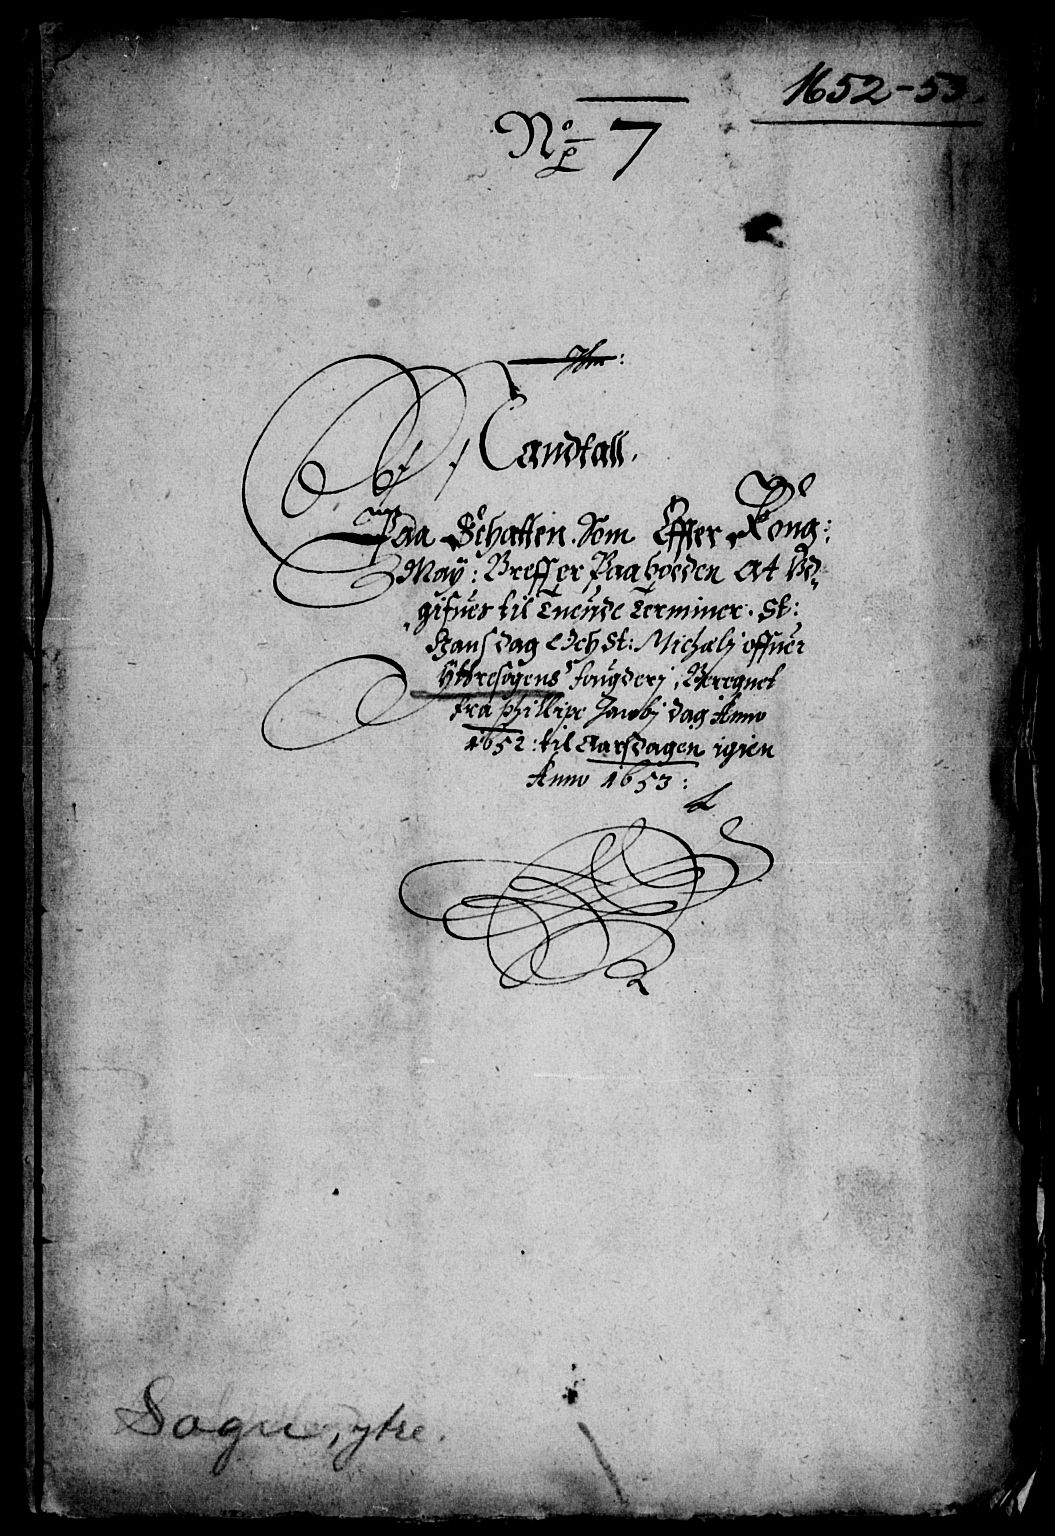 1652-53.
No 7
Mandtall.
Paa Schatten Som Effter Kong:
May: Breff er Paaböeden At Vd-
gifues til Tuende Terminer. St:
Hans dag Och St: Michælj offuer
Yttresogens fougderj, Beregnet
fra Phillipe Jacobj dag Anno
1652: til Aarsdagen igien
Anno 1653:
Sogn, ytre.